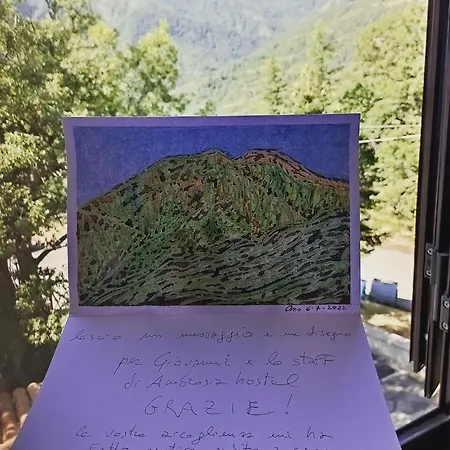 Ono 6-7-2022
lascio un messaggio e un disegno
per Giovanni e lo staff
di Ambrosia hostel
GRAZIE!
la vostra accoglienza mi ha
fatto